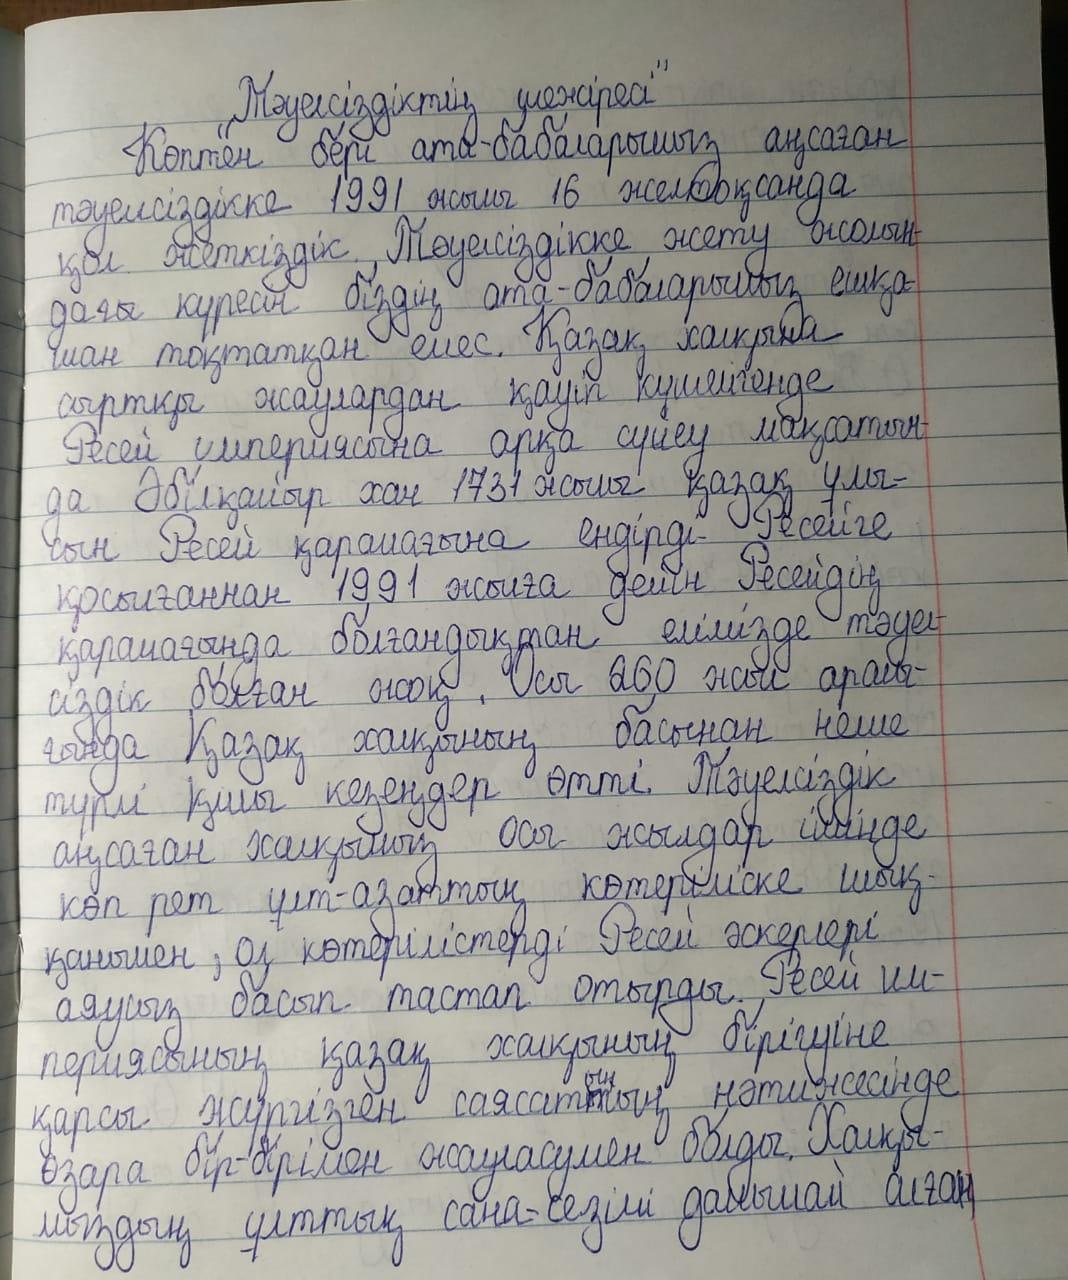 "Тәуелсіздіктің шежіресі"
Көптен бері ата-бабаларымыз аңсаған
тәуелсіздікке 1991 жылы 16 желтоқсанда
қол жеткіздік. Тәуелсіздікке жету жолын-
дағы күресін біздің ата-бабаларымыз ешқа-
шан тоқтатқан емес. Қазақ халқына
сыртқы жаулардан қауіп күшейгенде
Ресей империясына арқа сүйеу мақсатын-
да Әбілқайыр хан 1731 жылы қазақ ұлы-
сын Ресей қарамағына ендірді. Ресейге
қосылғаннан 1991 жылға дейін Ресейдің
қарамағында болғандықтан елімізде тәуел-
сіздік болған жоқ. Осы 260 жыл аралы-
ғында Қазақ халқының басынан неше
түрлі қилы кезеңдер өтті. Тәуелсіздік
аңсаған халқымыз осы жылдар ішінде
көп рет ұлт-азаттық көтеріліске шық-
қанымен, ол көтерілістерді Ресей әскерлері
аяусыз басып тастап отырды. Ресей им-
периясының қазақ халқының бірігуіне
қарсы жүргізген саясатының нәтижесінде
өзара бір-бірімен жауласумен болды. Халқы-
мыздың ұлттық сана-сезімі дамымай қалған